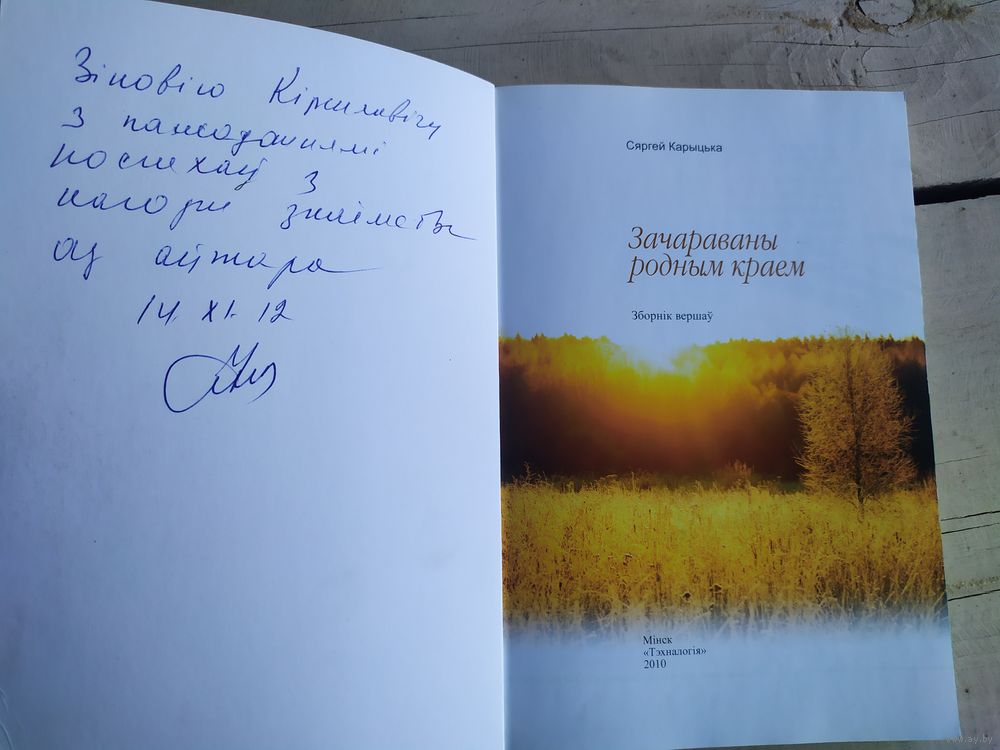 Зіновію Кірылавічу
З пажаданнямі
поспехаў З
нагоды знаёмства
ад аўтара
14. XI. 12
Сяргей Карыцька
Зачараваны
родным краем
Зборнік вершаў
Мінск
«Тэхналогія»
2010